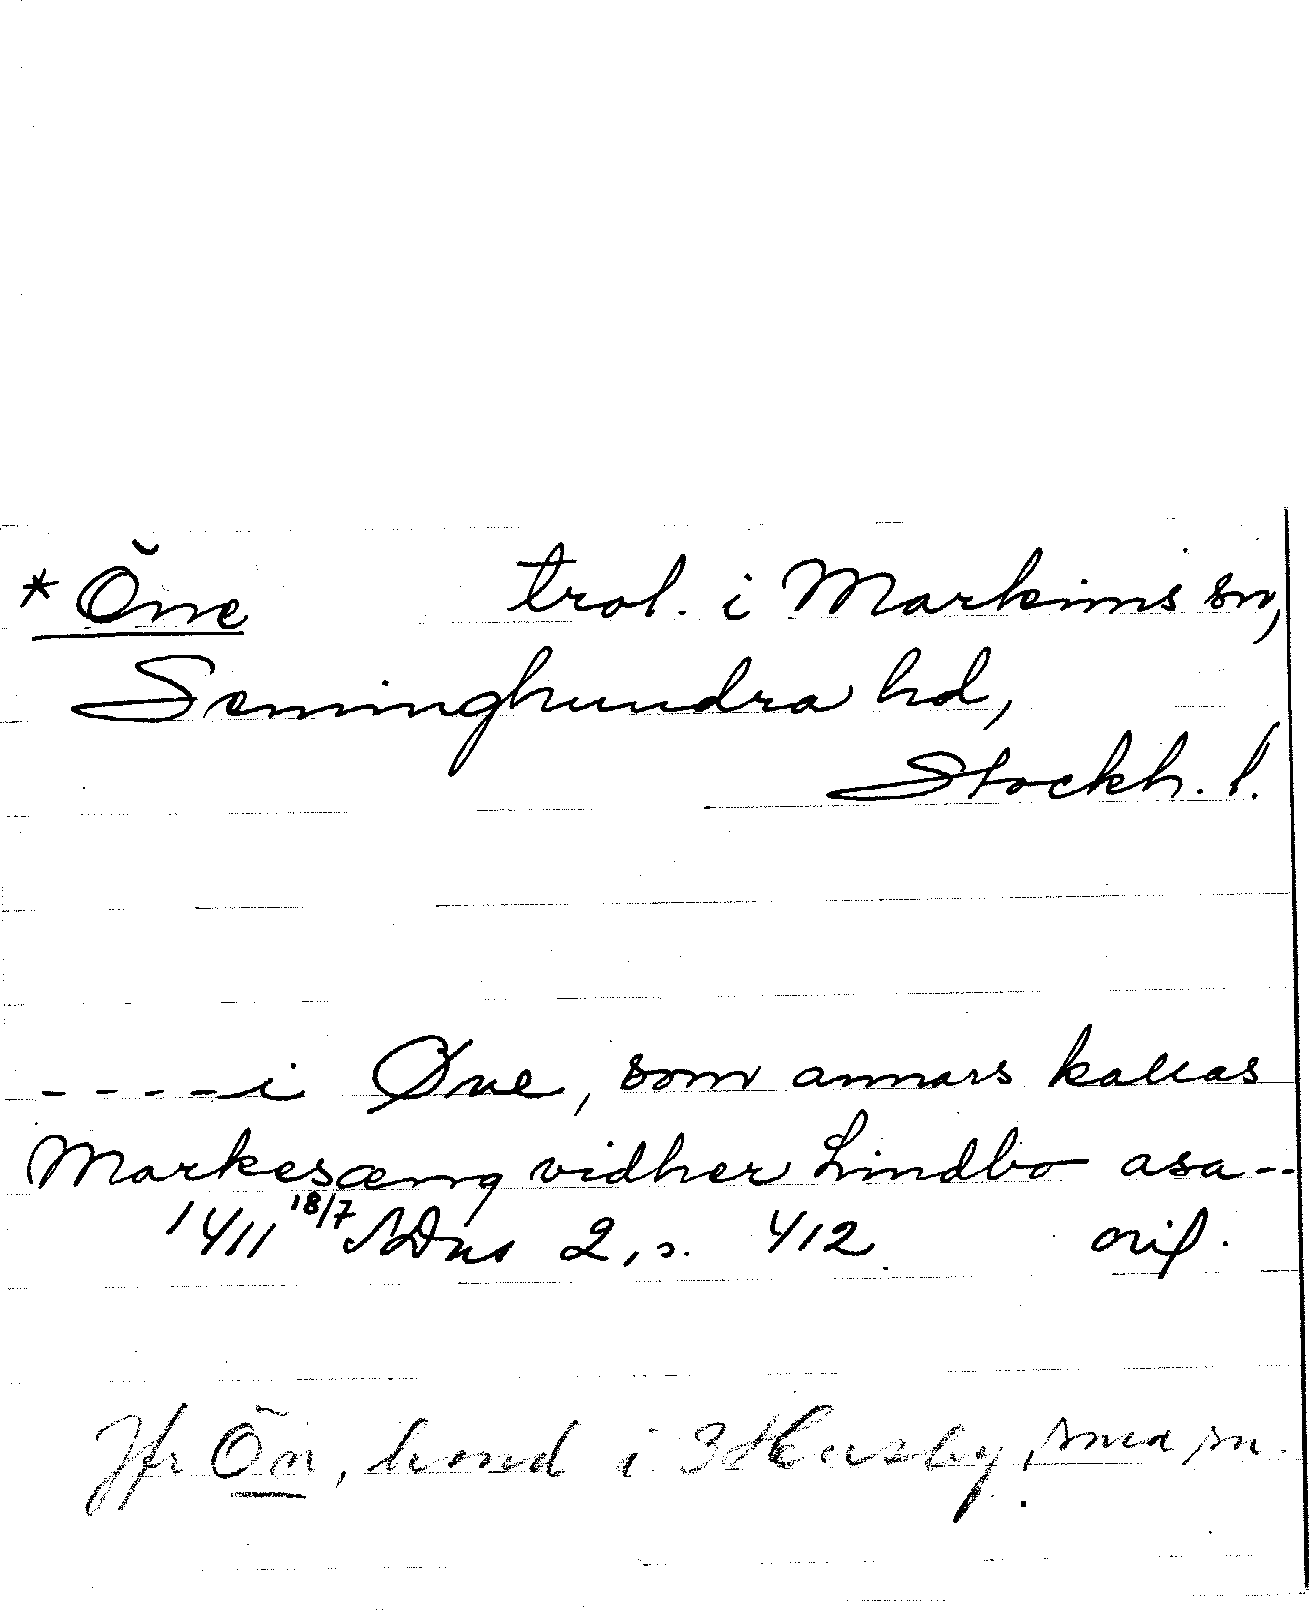 * Öne trol. i Markims sn,
Seminghundra hd,
Stockh. l.
- - - - i Øne, som annars kallas
Markesæng vidher Lindbo asa --
1411 18/7 SDns 2, s. 412 orig.
Jfr Ön, hmd i Husby, sma sn.